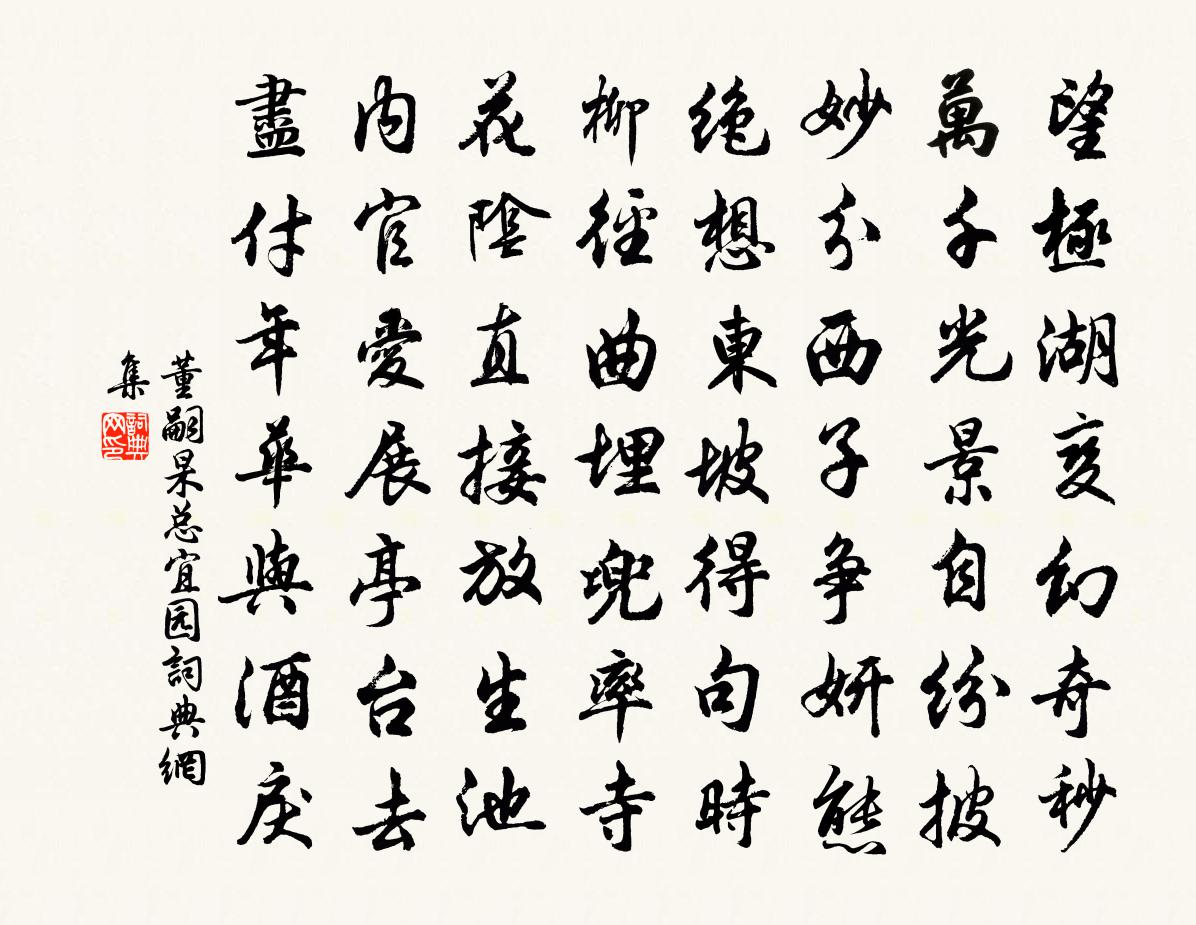 望極湖变幻奇秒
萬千光景自紛披
妙分西子争妍態
絶想東坡得句時
柳徑曲埋兜率寺
花陰直接放生池
内官愛展亭台去
盡付年華與酒戾
董嗣杲总宜园詞典網
集
詞典
网印